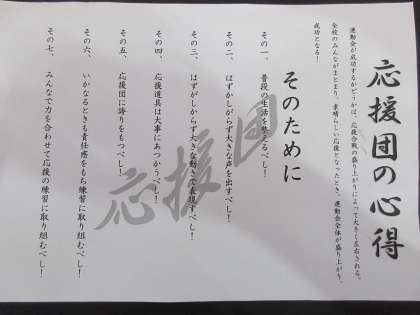 応援団の心得
運動会が成功するかどうかは、応援合戦の盛り上がりによって大きく左右される。
全校のみんながまとまり、素晴らしい応援となったとき、運動会全体が盛り上がり、
成功となる！
そのために
その一、普段の生活を整えるべし！
その二、はずかしがらず大きな声を出すべし！
その三、はずかしがらず大きな動きで表現すべし！
その四、応援道具は大事にあつかうべし！
その五、応援団に誇りをもつべし！
その六、いかなるときも責任感をもち練習に取り組むべし！
その七、みんなで力を合わせて応援の練習に取り組むべし！
応援団